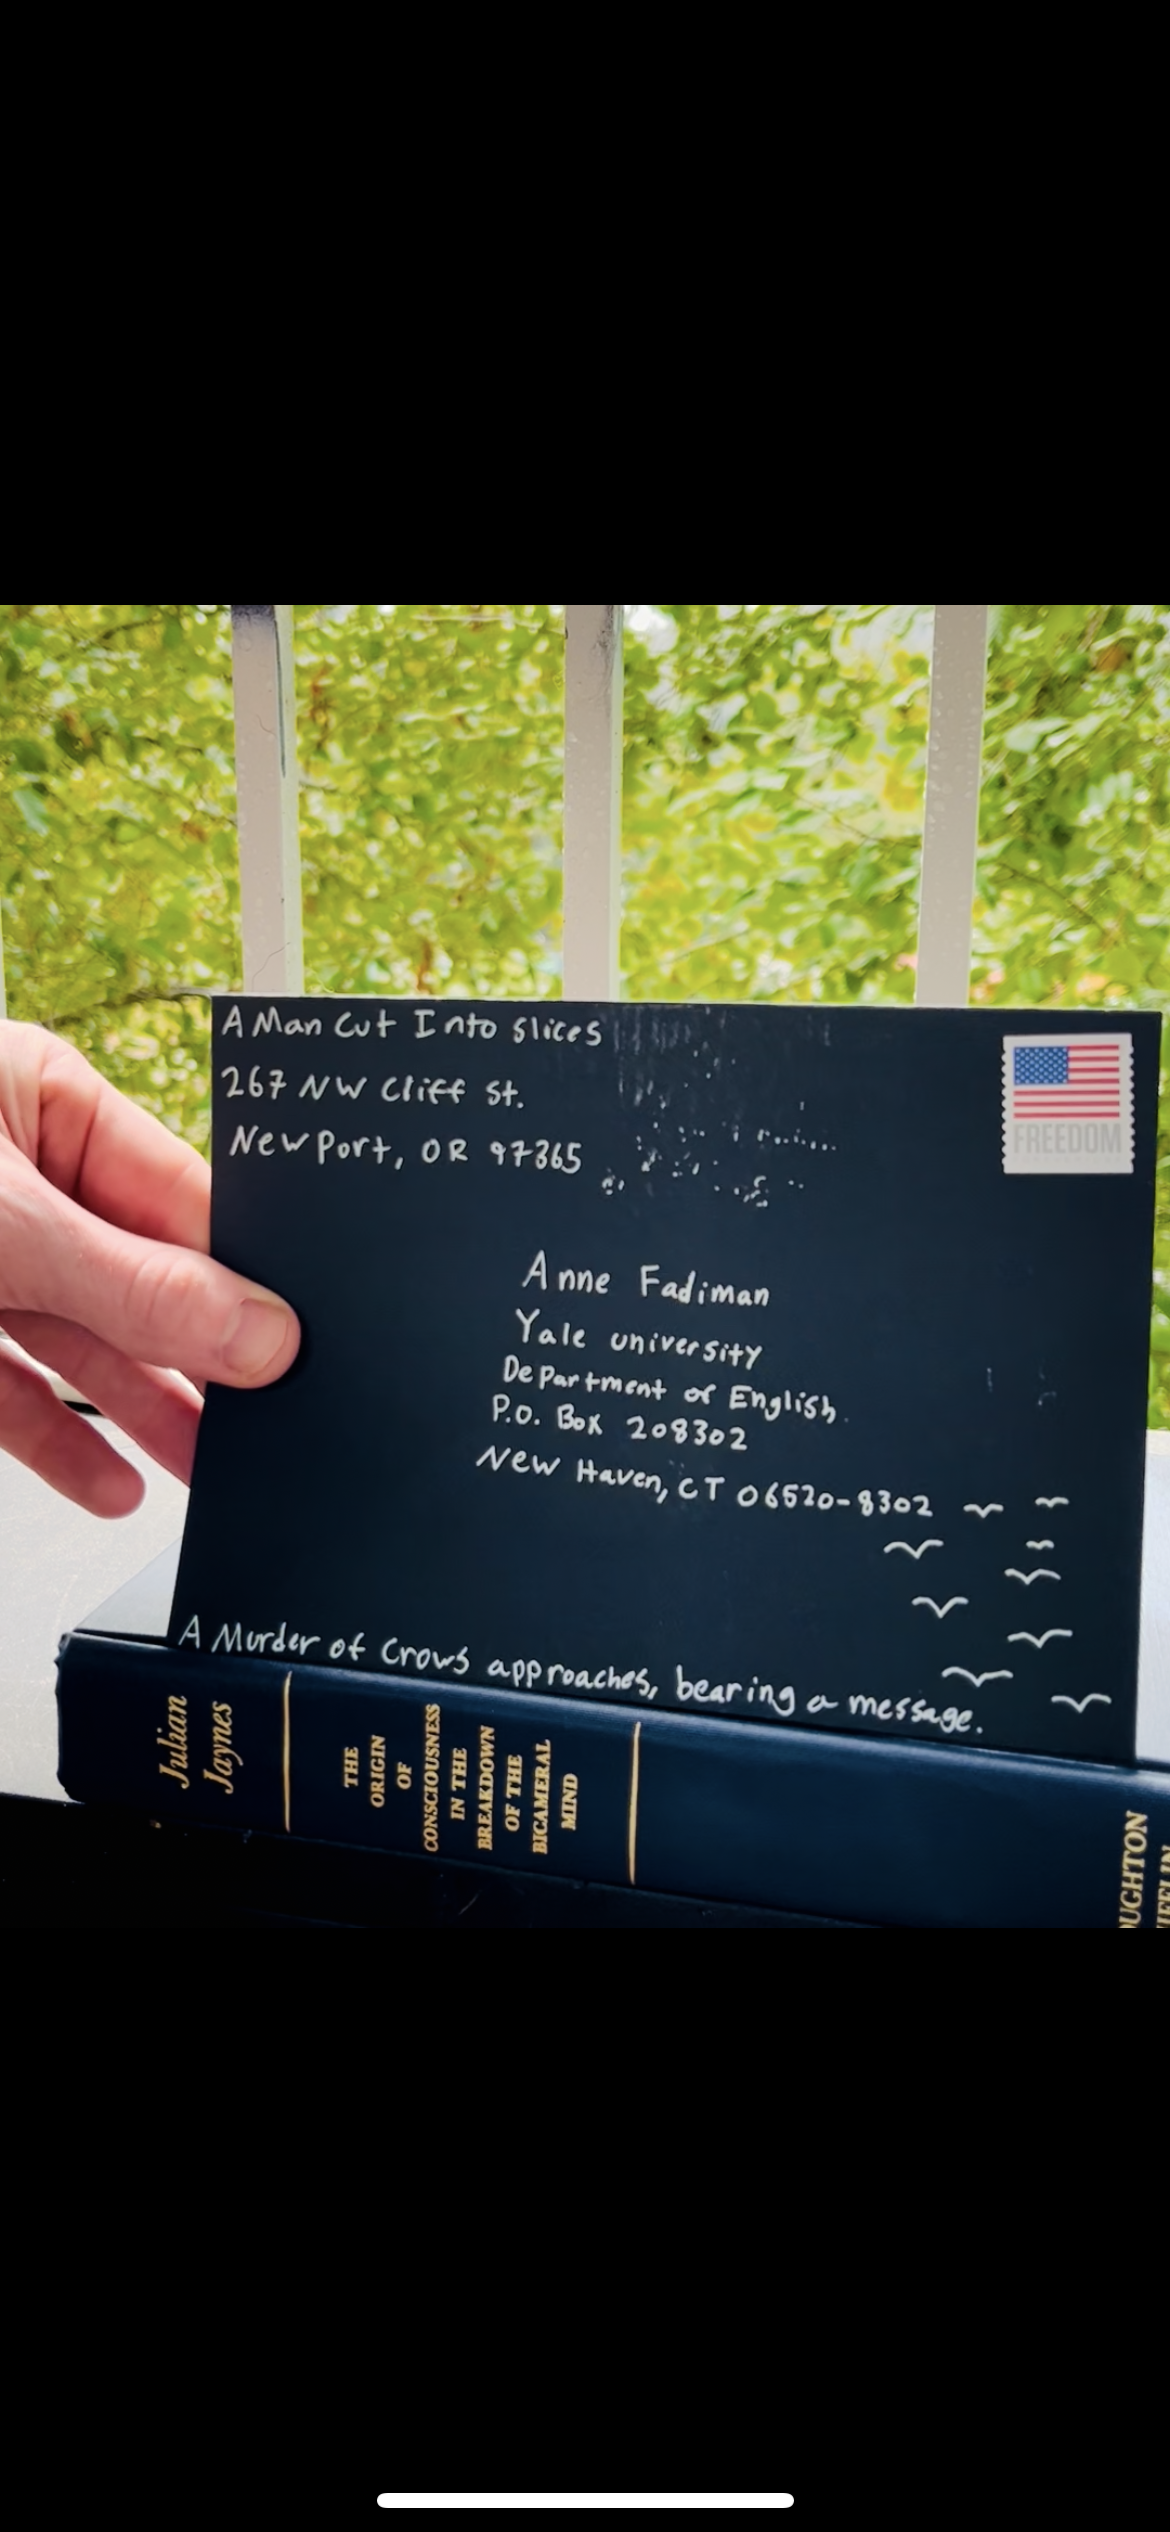 A Man Cut Into Slices
267 NW Cliff St.
Newport, OR 97365
FREEDOM
Anne Fadiman
Yale university
Department of English
P.O. Box 208302
New Haven, CT 06520-8302
A Murder of Crows approaches, bearing a message.
Julian
Jaynes
THE
ORIGIN
OF
CONSCIOUSNESS
IN THE
BREAKDOWN
OF THE
BICAMERAL
MIND
OUGHTON